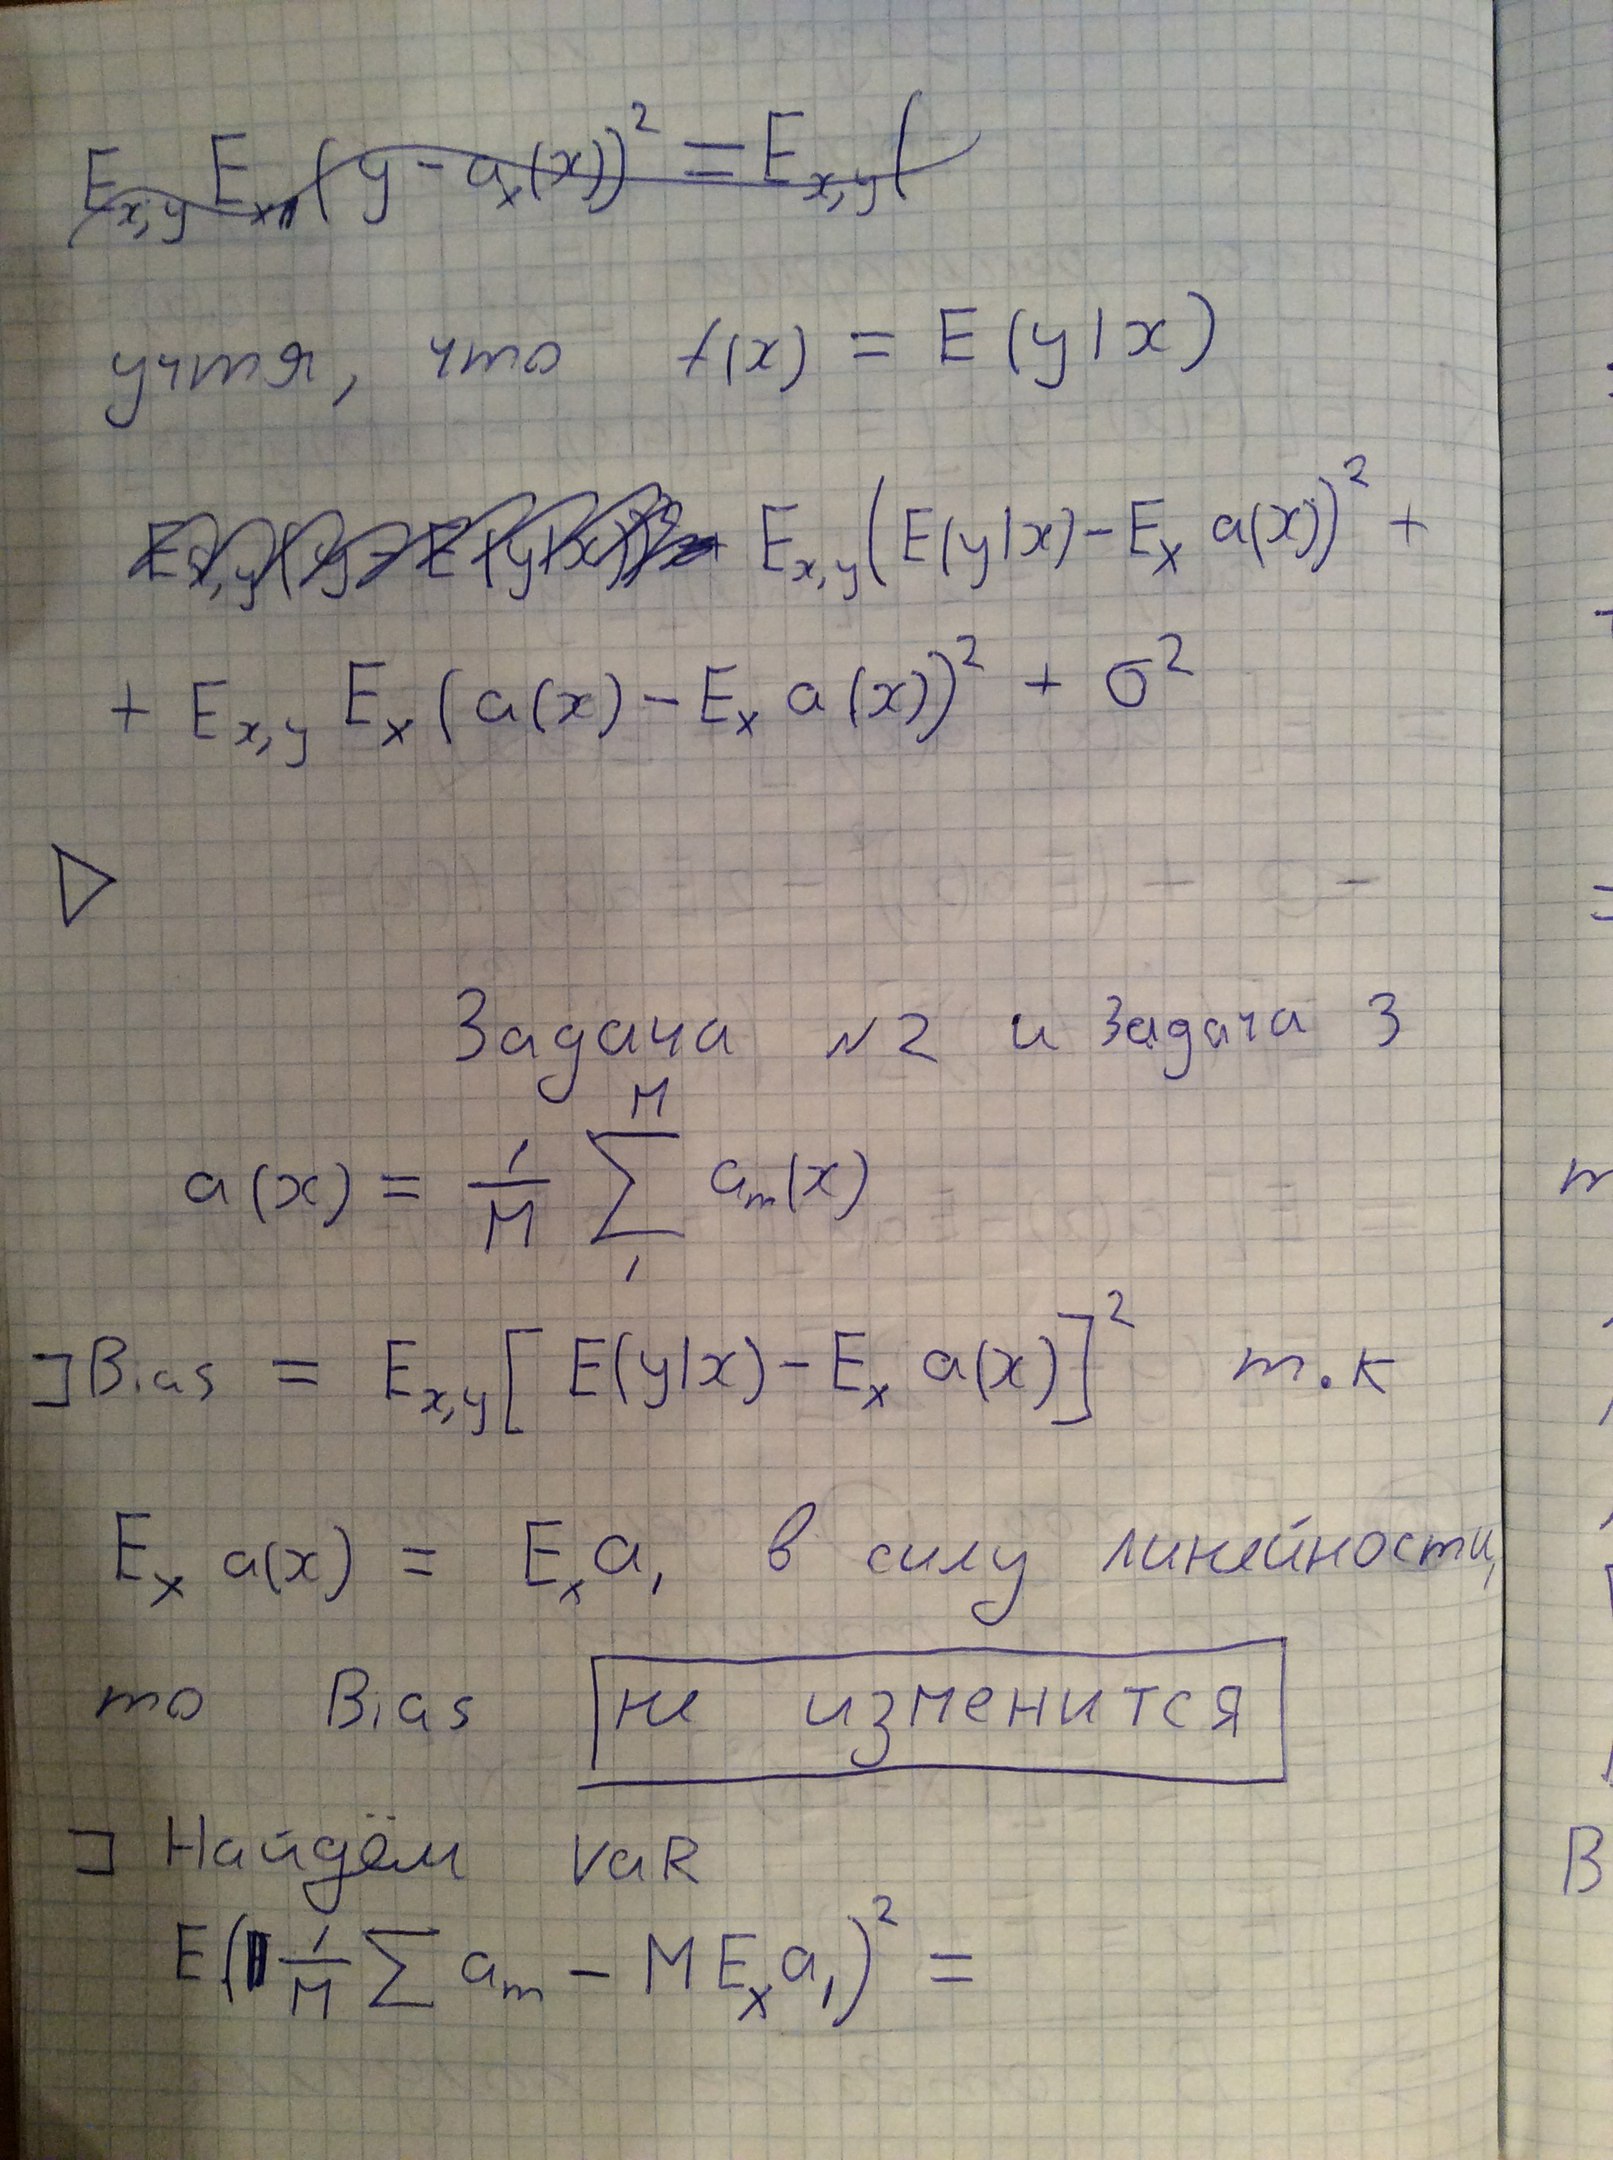 E_{x,y} E_x (y - a_x(x))² = E_{x,y} (
учтя, что f(x) = E(y|x)
E_{x,y}(y - E(y|x))² + E_{x,y}(E(y|x) - E_x a(x))² +
+ E_{x,y} E_x (a(x) - E_x a(x))² + σ²
▷
Задача №2 и Задача 3
a(x) = 1/M ∑_1^M a_m(x)
]Bias = E_{x,y}[E(y|x) - E_x a(x)]² т.к
E_x a(x) = E_x a_1 в силу линейности,
то Bias не изменится
] Найдём vaR
E(1/M ∑ a_m - M E_x a_1)² =